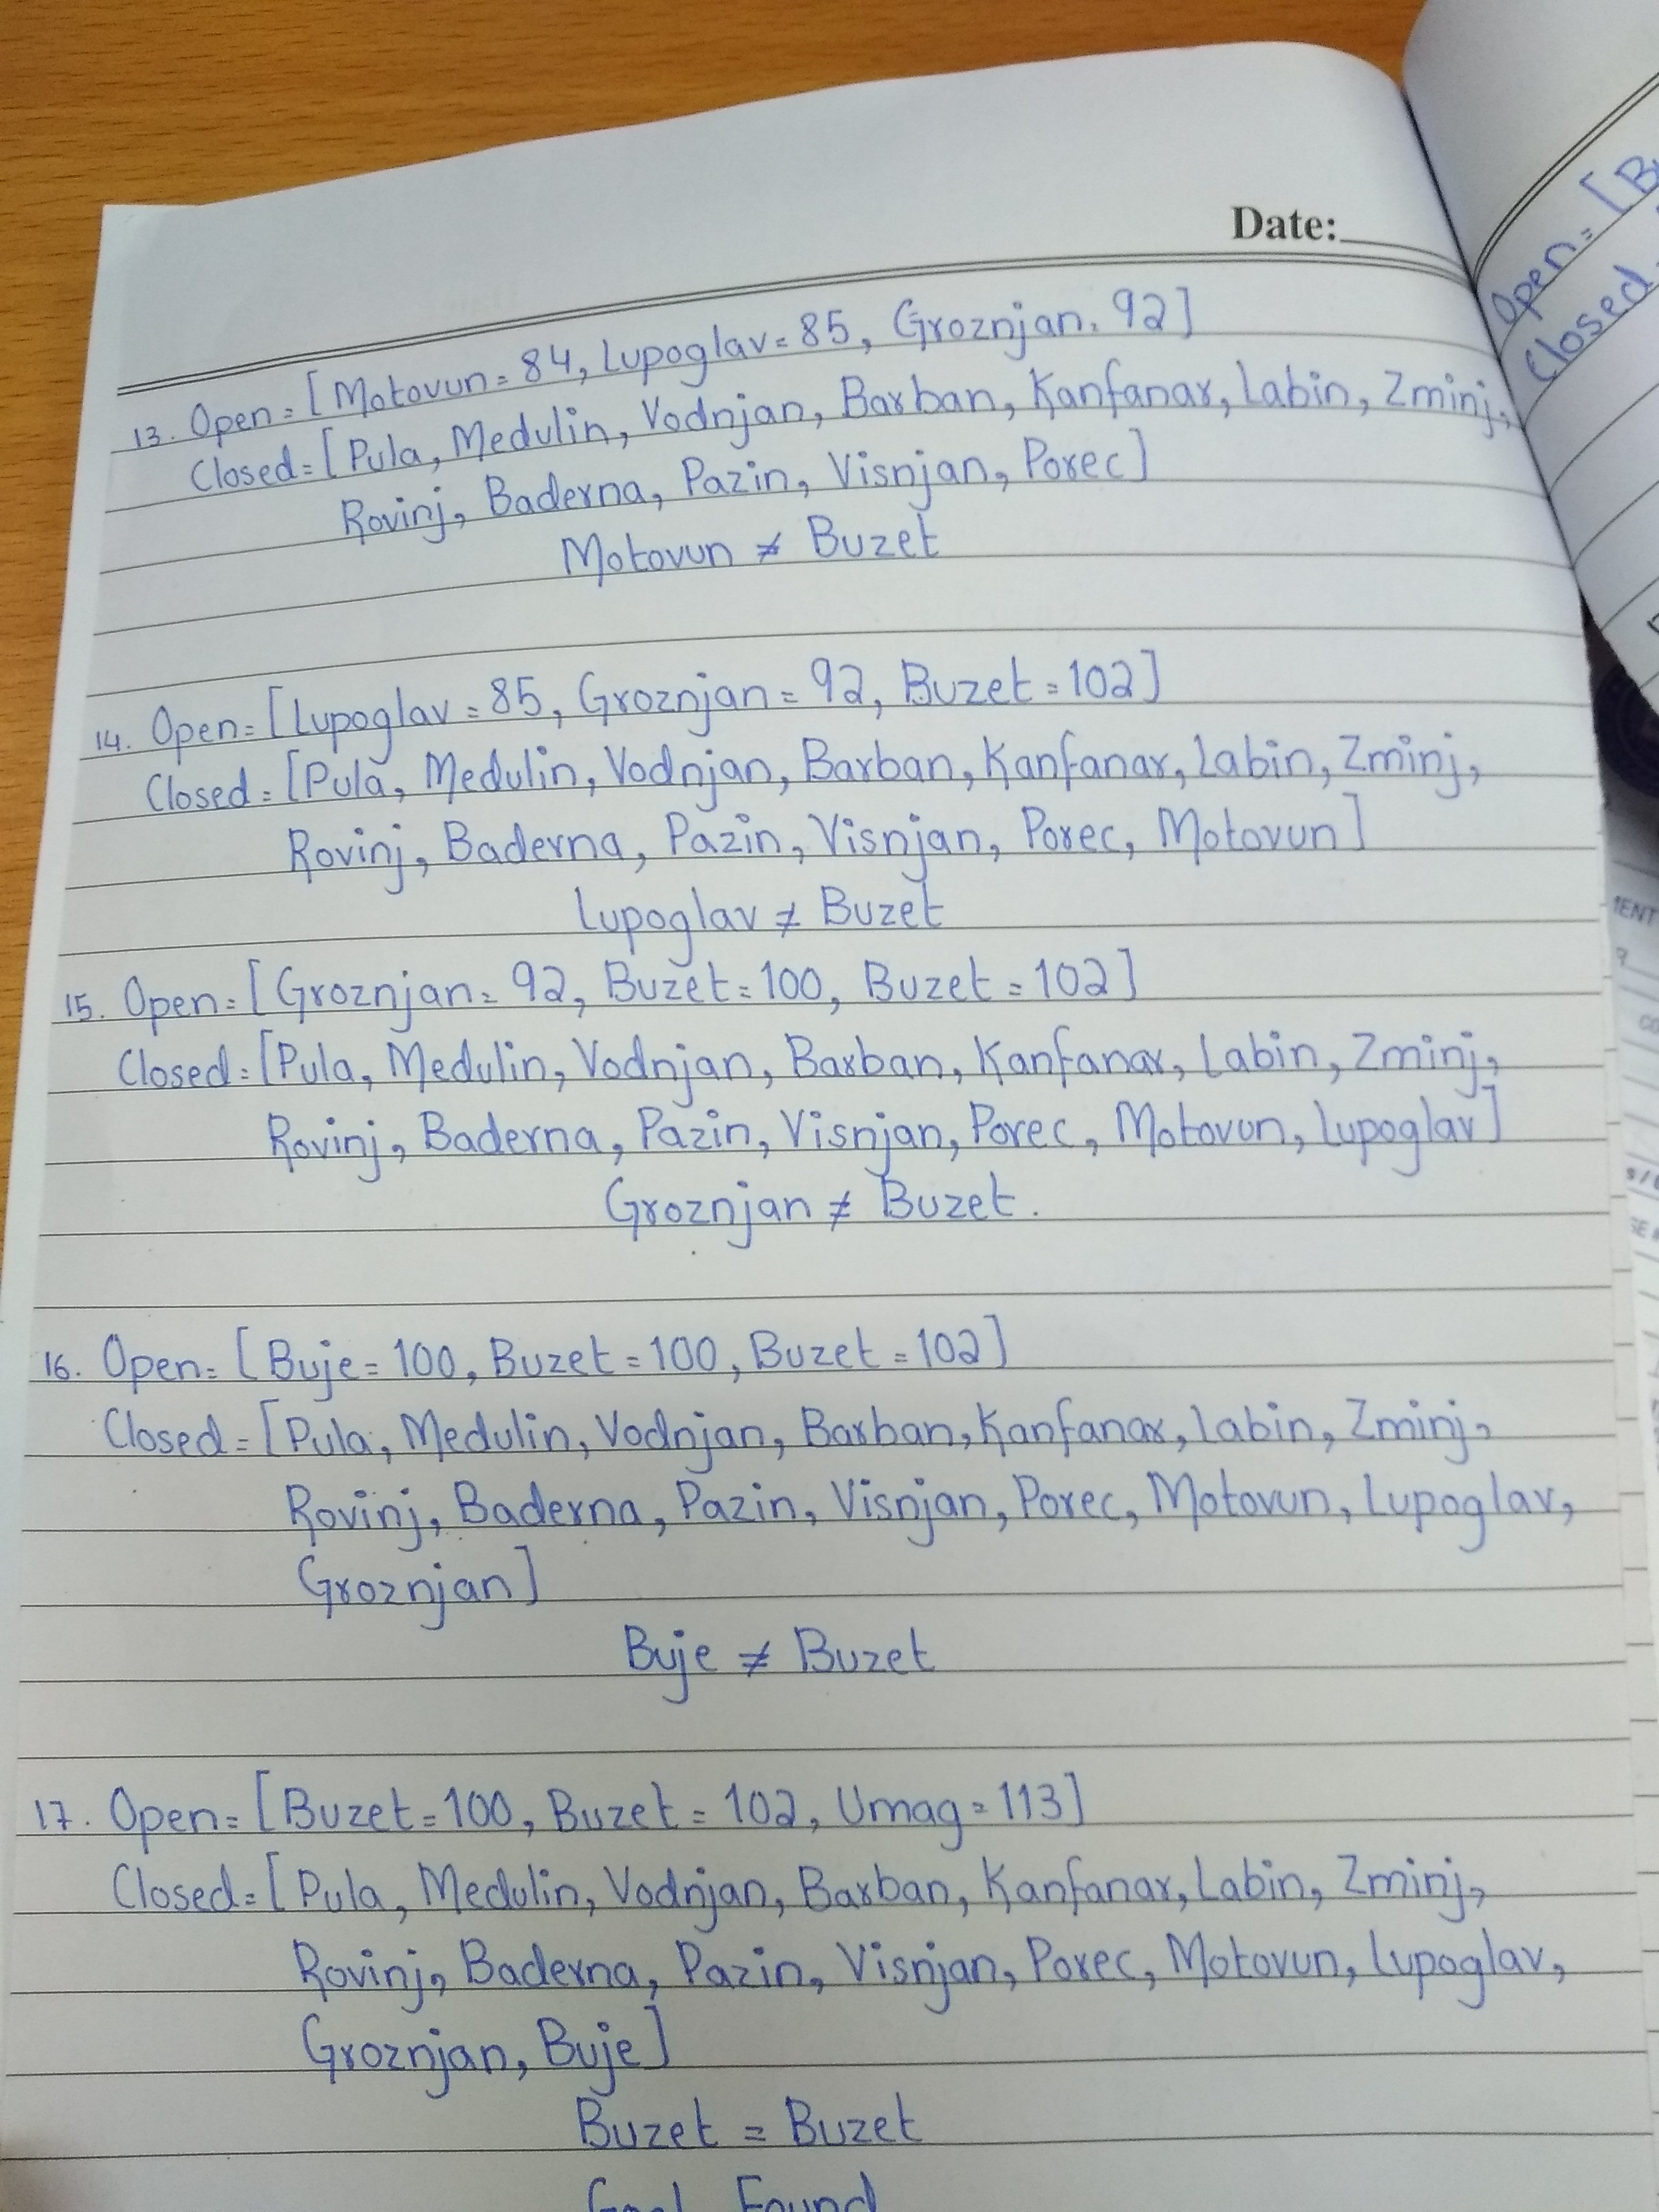 Date:
13. Open=[Motovun=84, Lupoglav=85, Groznjan=92]
Closed=[Pula, Medulin, Vodnjan, Barban, Kanfanar, Labin, Zminj,
Rovinj, Baderna, Pazin, Visnjan, Porec]
Motovun ≠ Buzet
14. Open=[Lupoglav=85, Groznjan=92, Buzet=102]
Closed=[Pula, Medulin, Vodnjan, Barban, Kanfanar, Labin, Zminj,
Rovinj, Baderna, Pazin, Visnjan, Porec, Motovun]
Lupoglav ≠ Buzet
15. Open=[Groznjan=92, Buzet=100, Buzet=102]
Closed=[Pula, Medulin, Vodnjan, Barban, Kanfanar, Labin, Zminj,
Rovinj, Baderna, Pazin, Visnjan, Porec, Motovun, Lupoglav]
Groznjan ≠ Buzet.
16. Open=[Buje=100, Buzet=100, Buzet=102]
Closed=[Pula, Medulin, Vodnjan, Barban, Kanfanar, Labin, Zminj,
Rovinj, Baderna, Pazin, Visnjan, Porec, Motovun, Lupoglav,
Groznjan]
Buje ≠ Buzet
17. Open=[Buzet=100, Buzet=102, Umag=113]
Closed=[Pula, Medulin, Vodnjan, Barban, Kanfanar, Labin, Zminj,
Rovinj, Baderna, Pazin, Visnjan, Porec, Motovun, Lupoglav,
Groznjan, Buje]
Buzet = Buzet
Goal Found
Open=[B
Closed